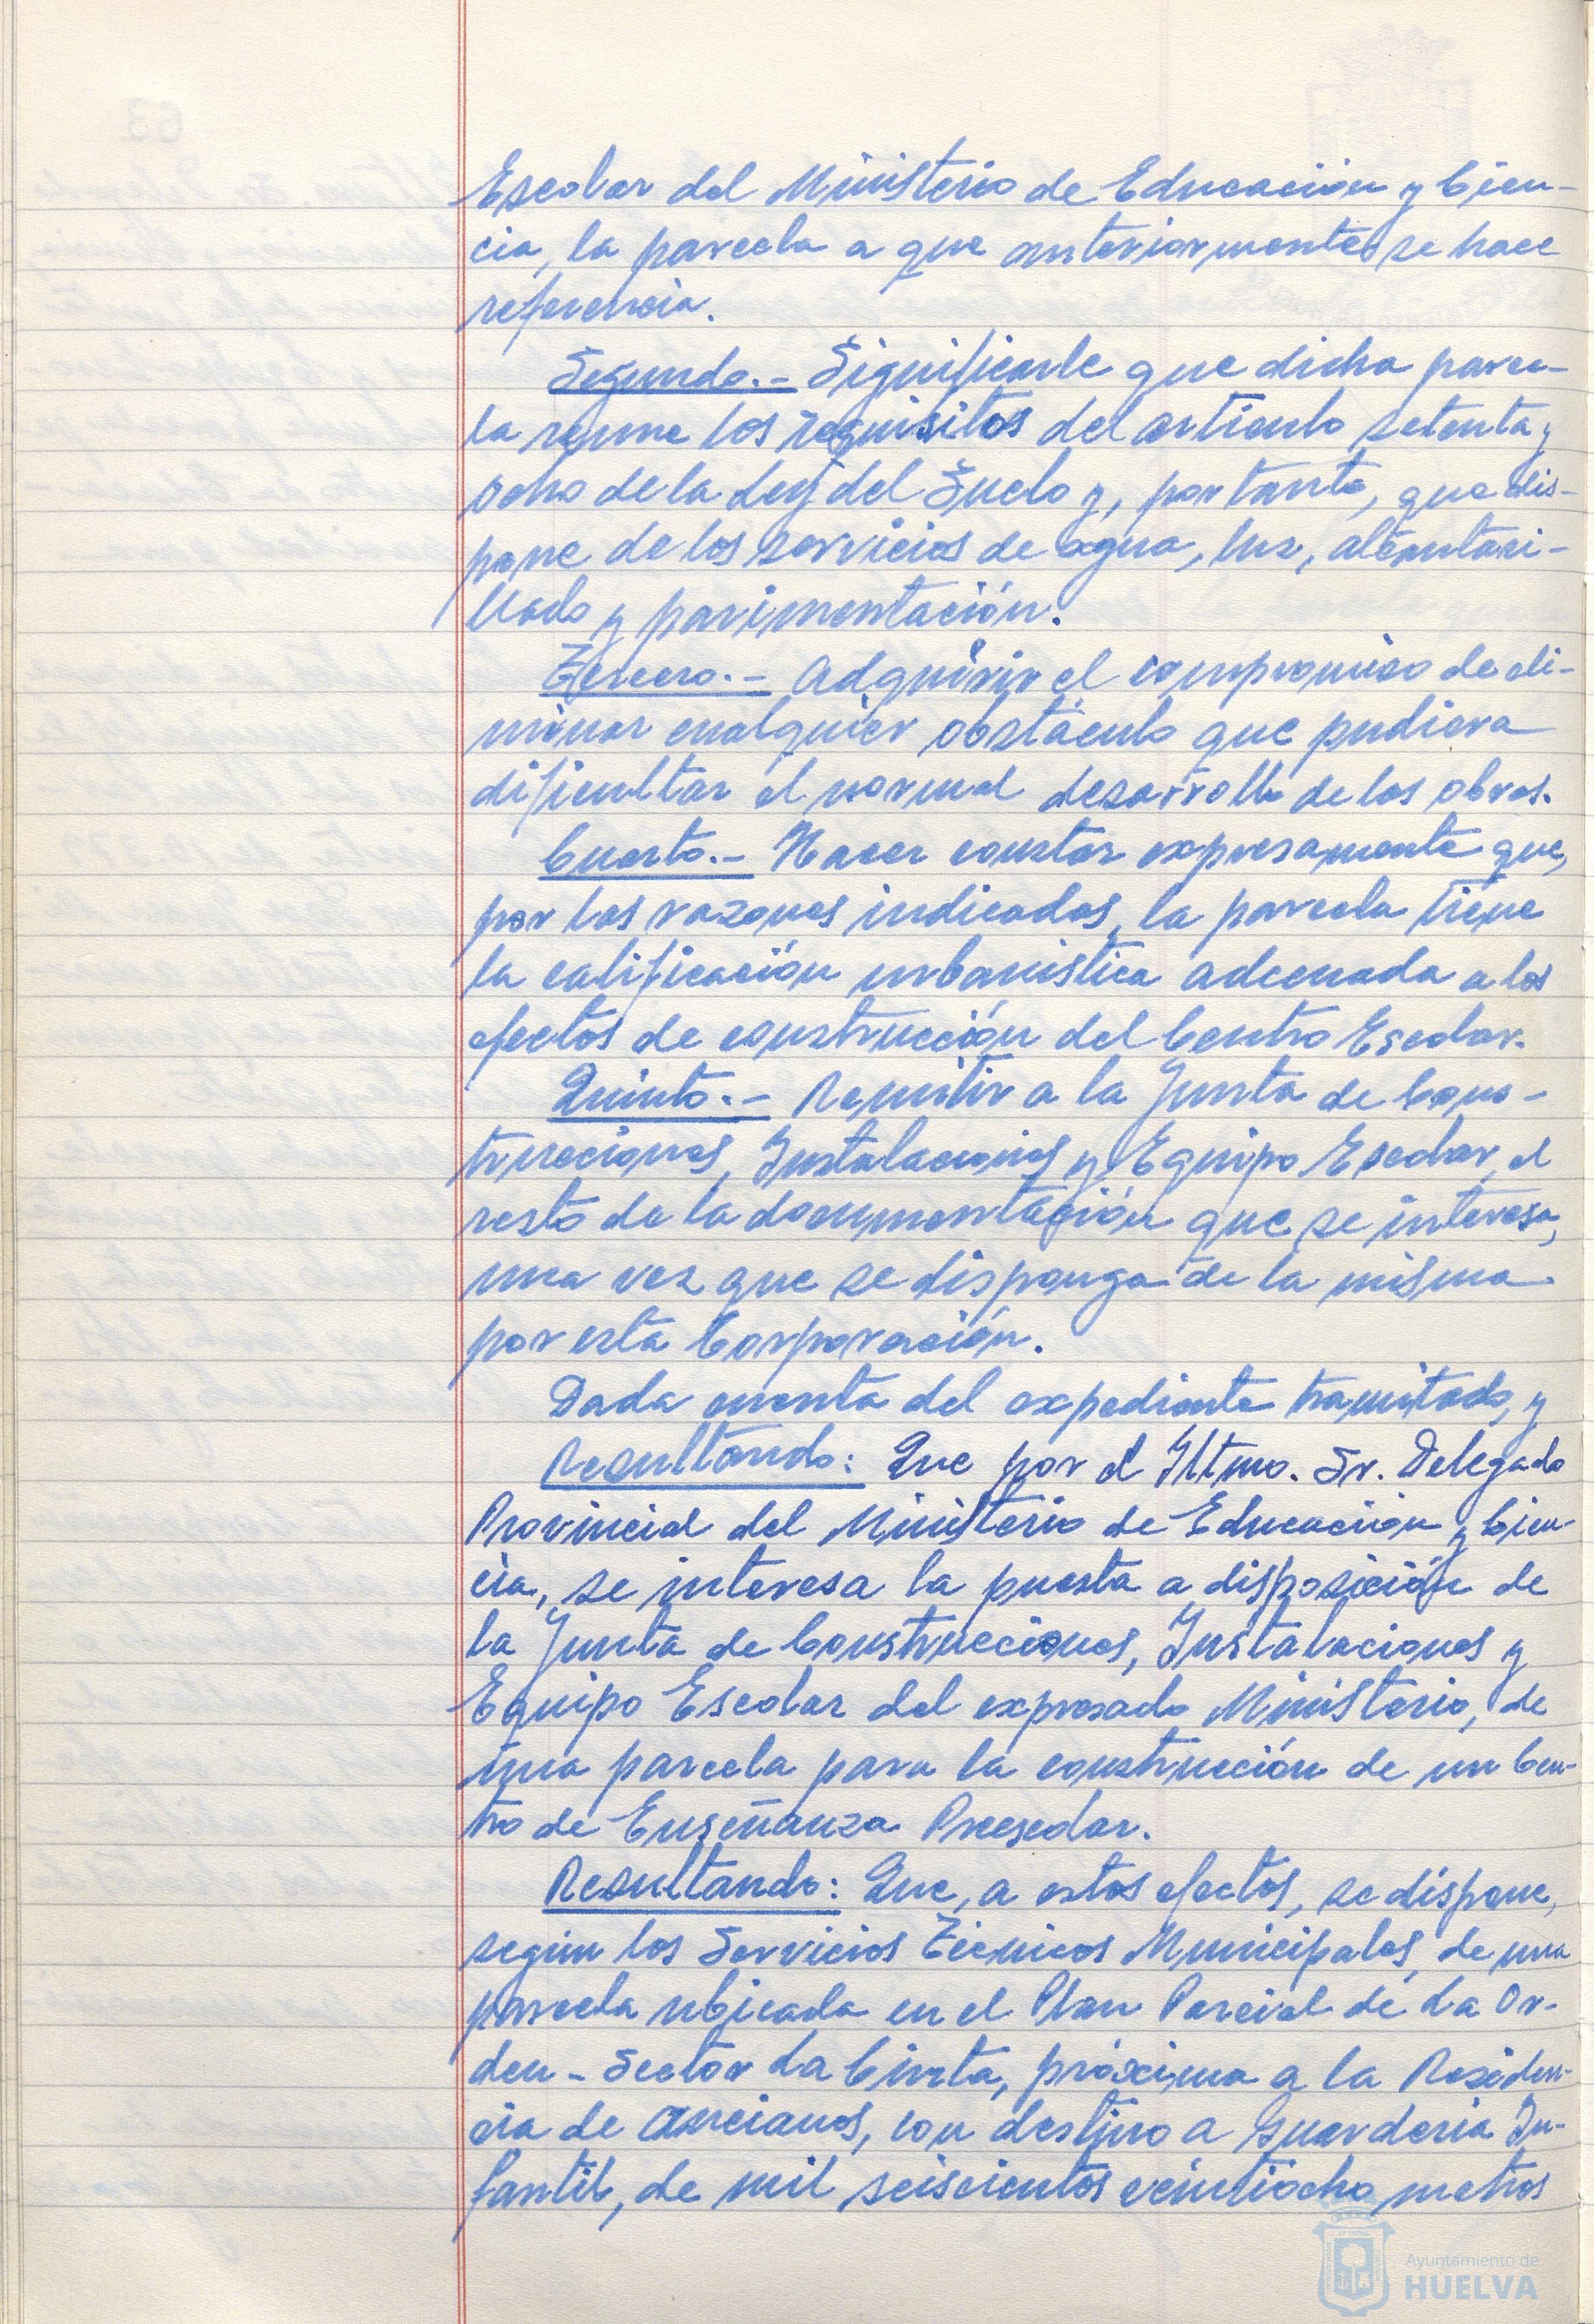 Escolar del Ministerio de Educación y Cien-
cia, la parcela a que anteriormente se hace
referencia.
Segundo.- Significarle que dicha parce-
la reune los requisitos del artículo setenta y
ocho de la Ley del Suelo y, por tanto, que dis-
pone de los servicios de agua, luz, alcantari-
llado y pavimentación.
Tercero.- Adquirir el compromiso de eli-
minar cualquier obstáculo que pudiera
dificultar el normal desarrollo de las obras.
Cuarto.- Hacer constar expresamente que,
por las razones indicadas, la parcela tiene
la calificación urbanística adecuada a los
efectos de construcción del Centro Escolar.
Quinto.- Remitir a la Junta de Cons-
trucciones, Instalaciones y Equipo Escolar, el
resto de la documentación que se interesa,
una vez que se disponga de la misma
por esta Corporación.
Dada cuenta del expediente tramitado, y
Resultando: Que por el Iltmo. Sr. Delegado
Provincial del Ministerio de Educación y Cien-
cia, se interesa la puesta a disposición de
la Junta de Construcciones, Instalaciones y
Equipo Escolar del expresado Ministerio, de
una parcela para la construcción de un Cen-
tro de Enseñanza Preescolar.
Resultando: Que, a estos efectos, se dispone,
según los Servicios Técnicos Municipales, de una
parcela ubicada en el Plan Parcial de La Or-
den - Sector La Cinta, próxima a la Residen-
cia de Ancianos, con destino a Guardería In-
fantil, de mil seiscientos veintiocho metros
Ayuntamiento de
HUELVA